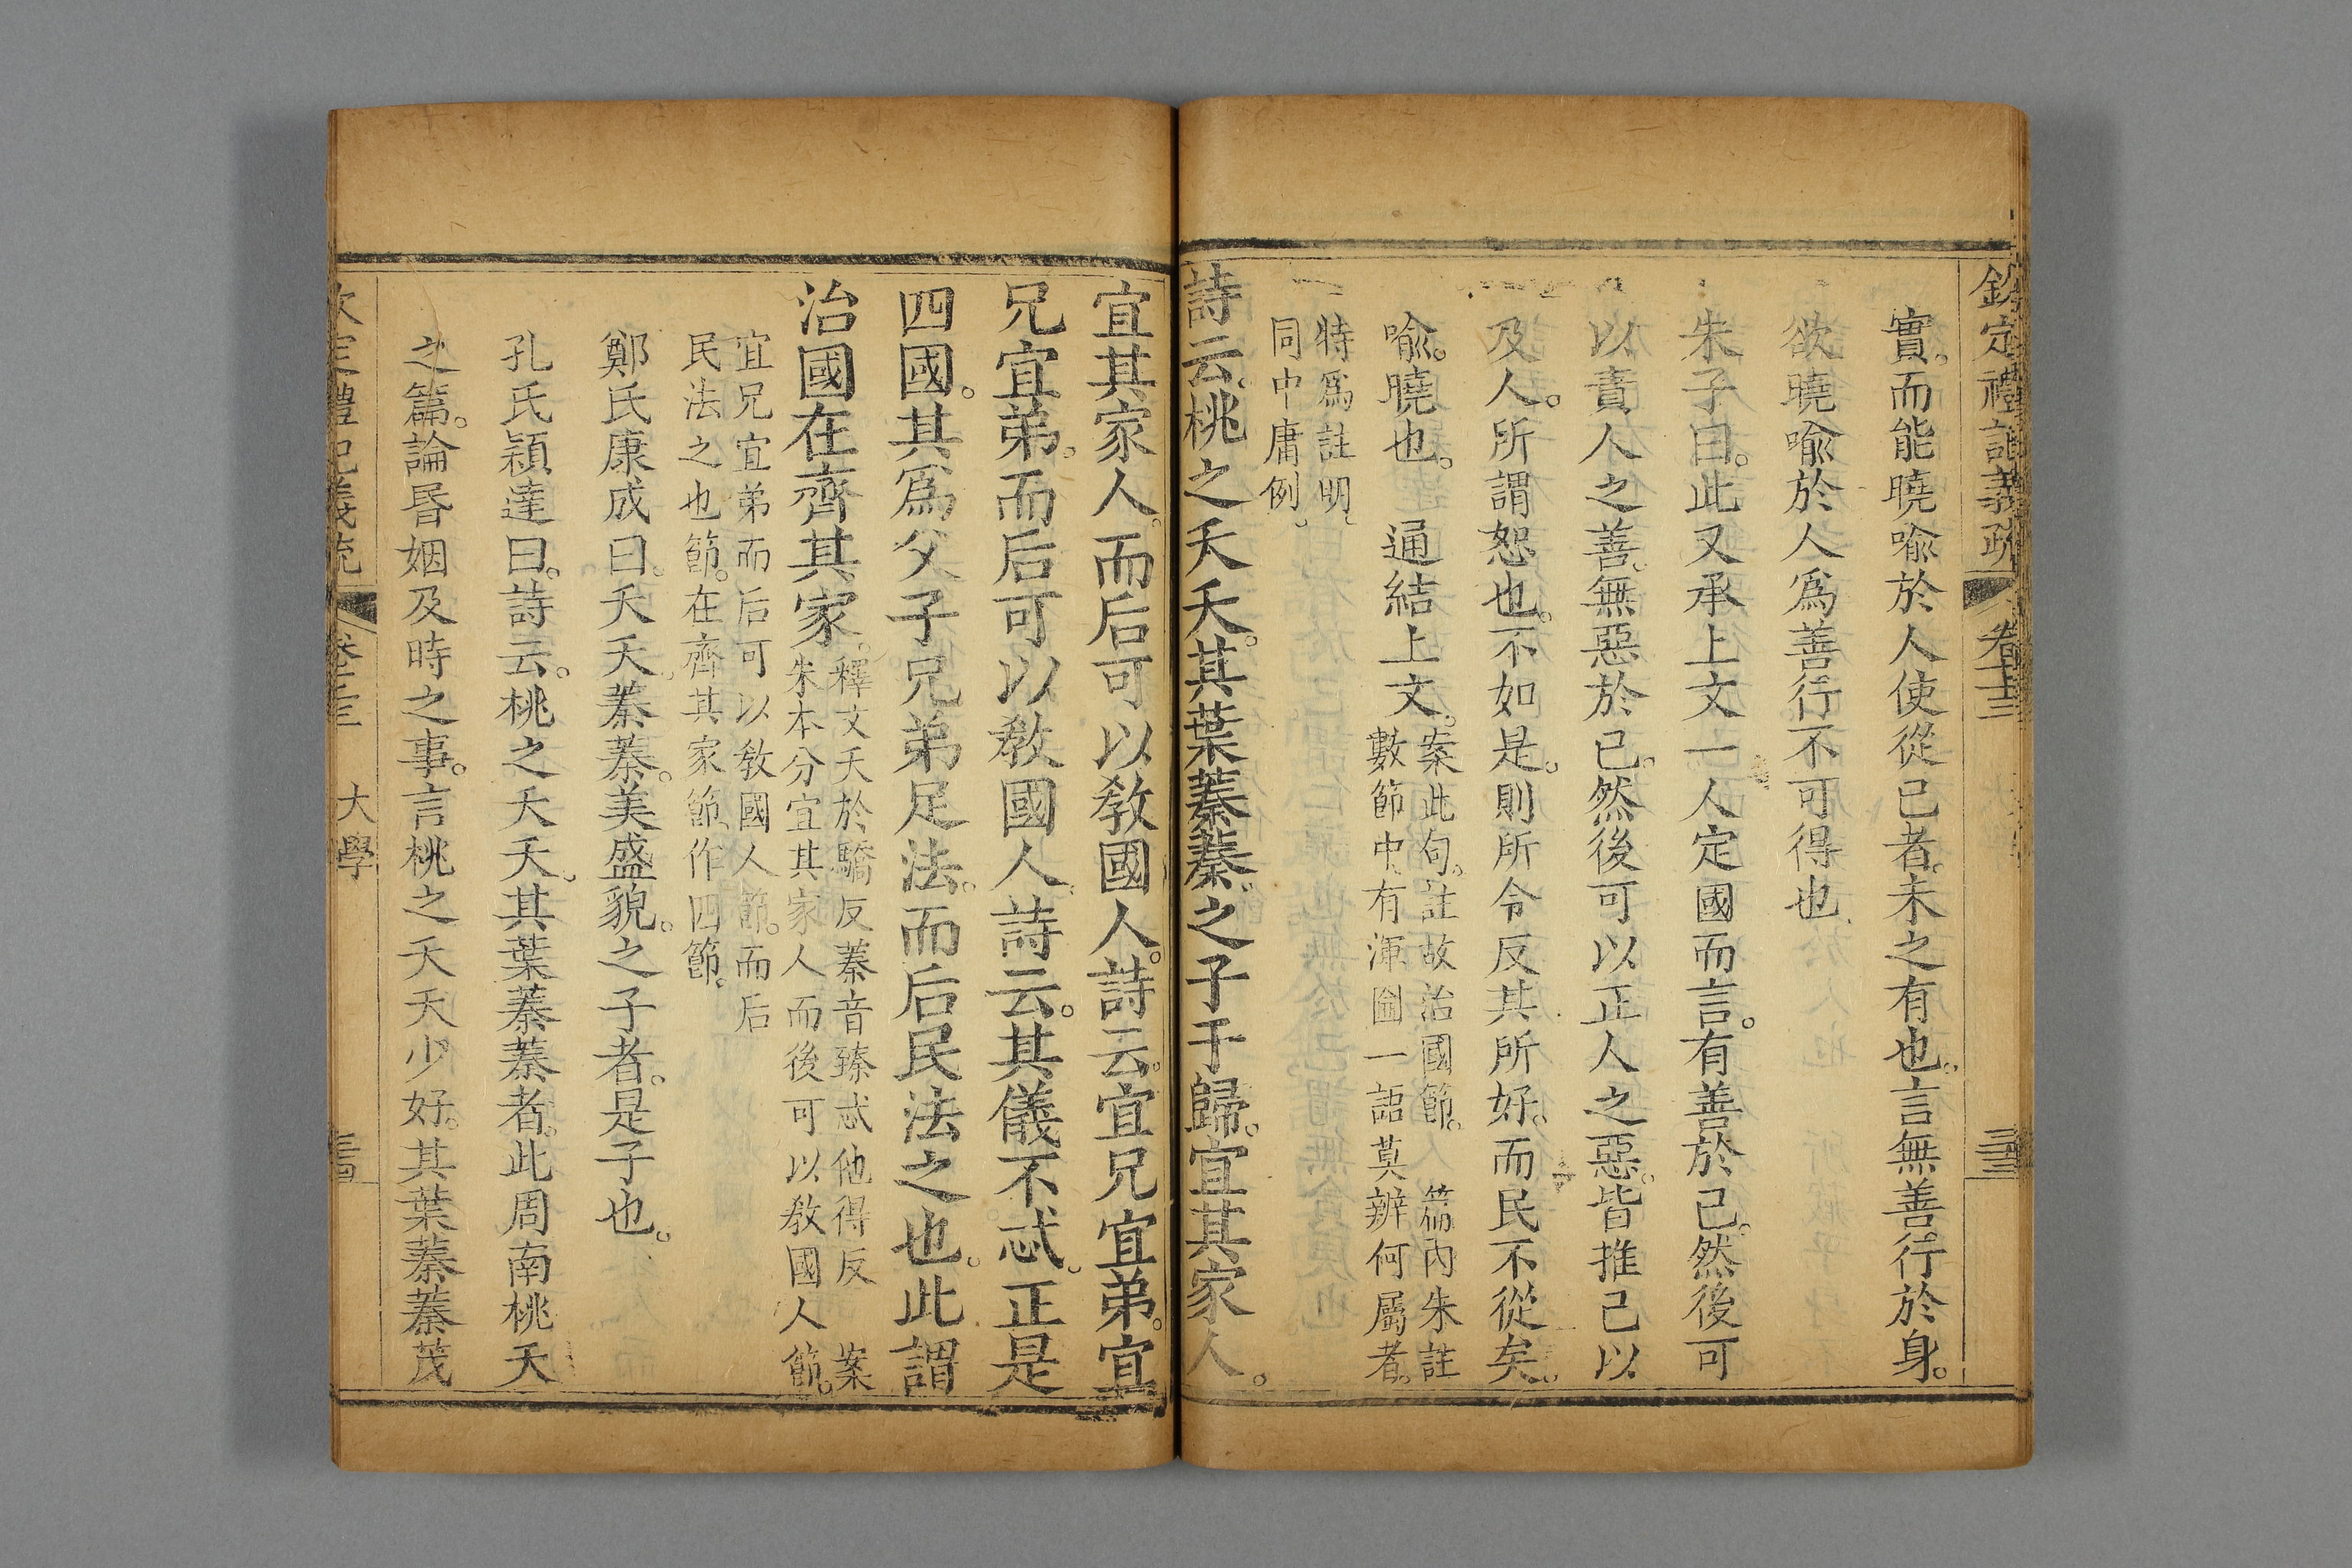 欽定禮記義疏 卷七十三 三十三
實。而能曉喻於人使從己者。未之有也。言無善行於身。
欲曉喻於人爲善行不可得也
朱子曰。此又承上文一人定國而言。有善於己。然後可
以責人之善。無惡於己。然後可以正人之惡。皆推己以
及人。所謂恕也。不如是。則所令反其所好。而民不從矣。
喻。曉也。 通結上文。
案此句。註故治國節。 篇內朱註
數節中。有渾圇一語莫辨何屬者。
特爲註明。
同中庸例。
詩云。桃之夭夭。其葉蓁蓁。之子于歸。宜其家人。
宜其家人。而后可以敎國人。詩云。宜兄宜弟。宜
兄宜弟。而后可以敎國人。詩云。其儀不忒。正是
四國。其爲父子兄弟足法。而后民法之也。此謂
治國在齊其家。
釋文夭於驕反蓁音臻忒他得反 案
朱本分宜其家人而後可以敎國人節。
宜兄宜弟而后可以敎國人節。而后
民法之也節。在齊其家節。作四節。
鄭氏康成曰。夭夭蓁蓁。美盛貌。之子者。是子也。
孔氏穎達曰。詩云。桃之夭夭。其葉蓁蓁者。此周南桃夭
之篇。論昏姻及時之事。言桃之夭夭少好。其葉蓁蓁茂
大學